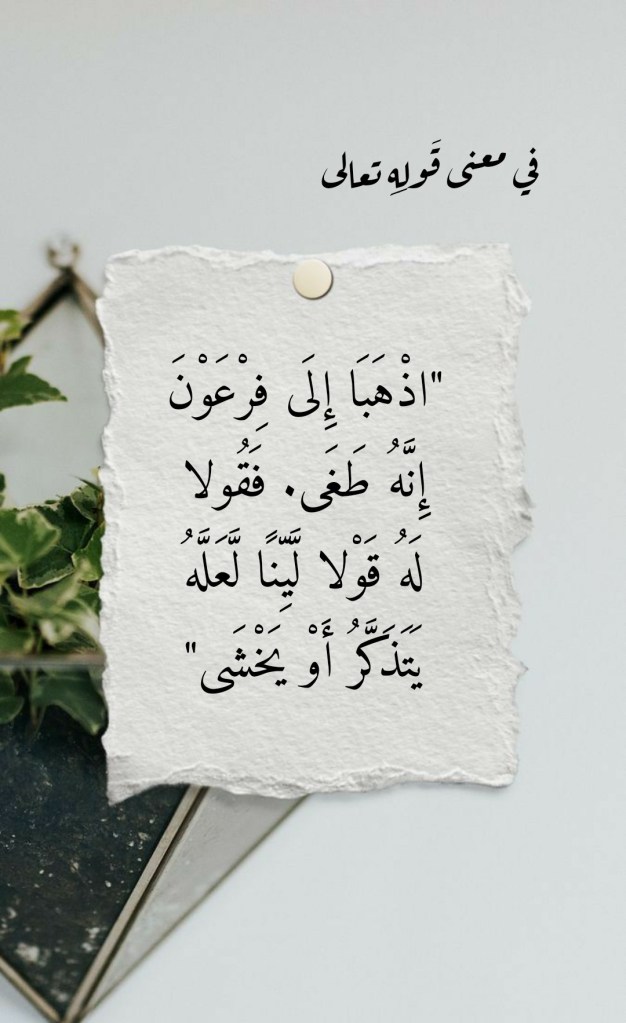 في معنى قَولِهِ تعالى
"اذْهَبَا إِلَى فِرْعَوْنَ
إِنَّهُ طَغَى. فَقُولا
لَهُ قَوْلا لَّيِّنًا لَّعَلَّهُ
يَتَذَكَّرُ أَوْ يَخْشَى"